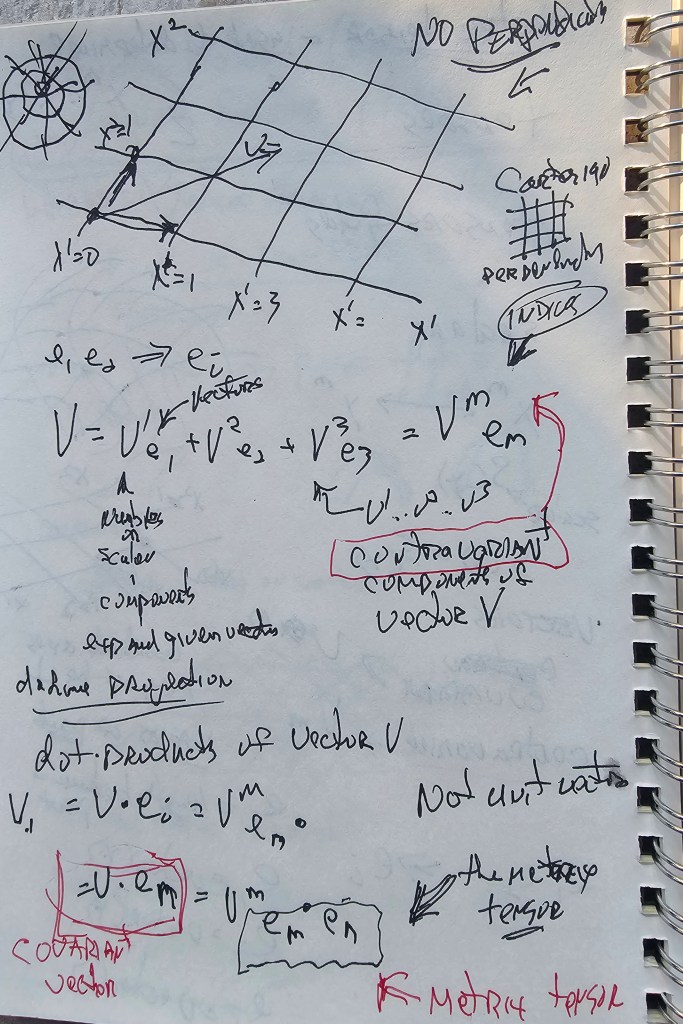 X²
NO PERPENDICULARS
X²=1
V=
Cartesian
PERPENDICULAR
X'=0
X'=1
X'=3
X'=
X'
INDICES
e₁ e₂ ⇒ eᵢ
vectors
V = V'e₁ + V²e₂ + V³e₃ = Vᵐeₘ
V'..V²..V³
numbers
or
scalar
components
CONTRAVARIANT
COMPONENTS OF
vector V
expand given vectors
define PROJECTION
dot·products of vector V
V₁ = V·eᵢ = Vᵐeₘ·
Not unit vectors
= V·eₘ = Vᵐ eₘ · eₙ
the metric
tensor
COVARIANT
vector
METRIC tensor